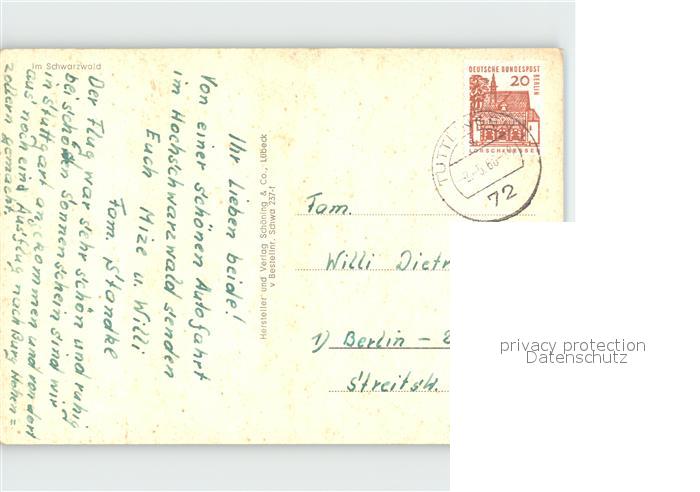 Im Schwarzwald
Ihr Lieben beide!
Von einer schönen Autofahrt
im Hochschwarzwald senden
Euch Mize u. Willi
Fam. Standke
Der Flug war sehr schön und ruhig
bei schönen Sonnenschein sind wir
in Stuttgart angekommen und von dort
aus noch eine Ausflug nach Burg Hohen=
zollern gemacht.
Hersteller und Verlag Schöning & Co., Lübeck
v Bestellnr. Schwa 237-1
DEUTSCHE BUNDESPOST
BERLIN
20
LORSCH/HESSEN
72
Fam.
Willi Dietr
1) Berlin -
Streitstr.
privacy protection
Datenschutz